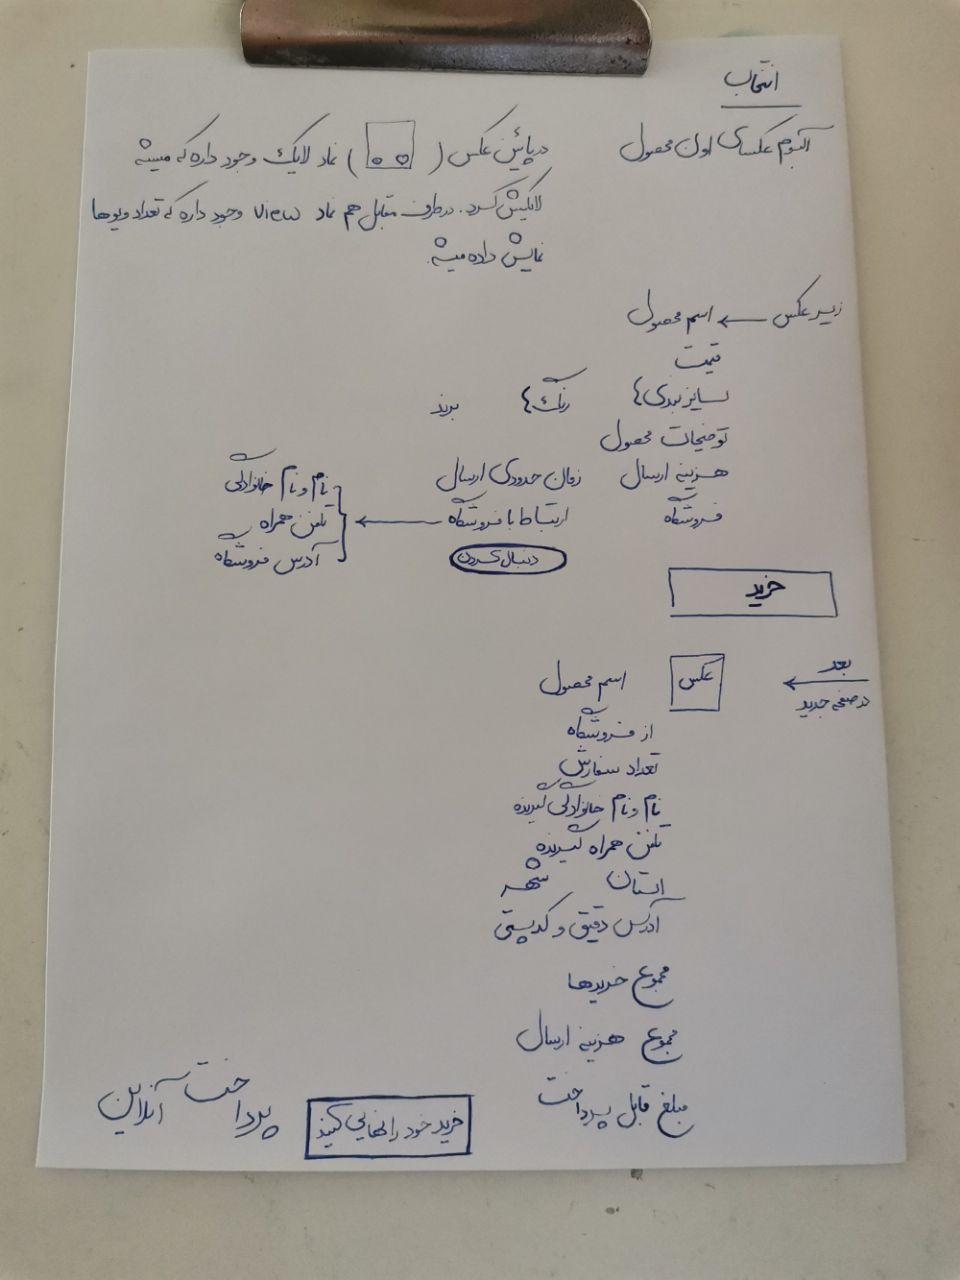 انتخاب
آلبوم عکسای اون محصول
در پائین عکس ( ) نماد لایک وجود داره که میشه
لایکش کرد. در طرف مقابل هم نماد view وجود داره که تعداد ویوها
نمایش داده میشه.
زیر عکس ← اسم محصول
قیمت
سایزبندی { رنگ { برند
توضیحات محصول
هزینه ارسال زمان حدودی ارسال
فروشگاه ارتباط با فروشگاه ← { نام و نام خانوادگی
تلفن همراه
آدرس فروشگاه
دنبال کردن
خرید
بعد ← در صفحه جدید
عکس اسم محصول
از فروشگاه
تعداد سفارش
نام و نام خانوادگی گیرنده
تلفن همراه گیرنده
استان شهر
آدرس دقیق و کدپستی
مجموع خریدها
مجموع هزینه ارسال
مبلغ قابل پرداخت
خرید خود را نهایی کنید
پرداخت آنلاین